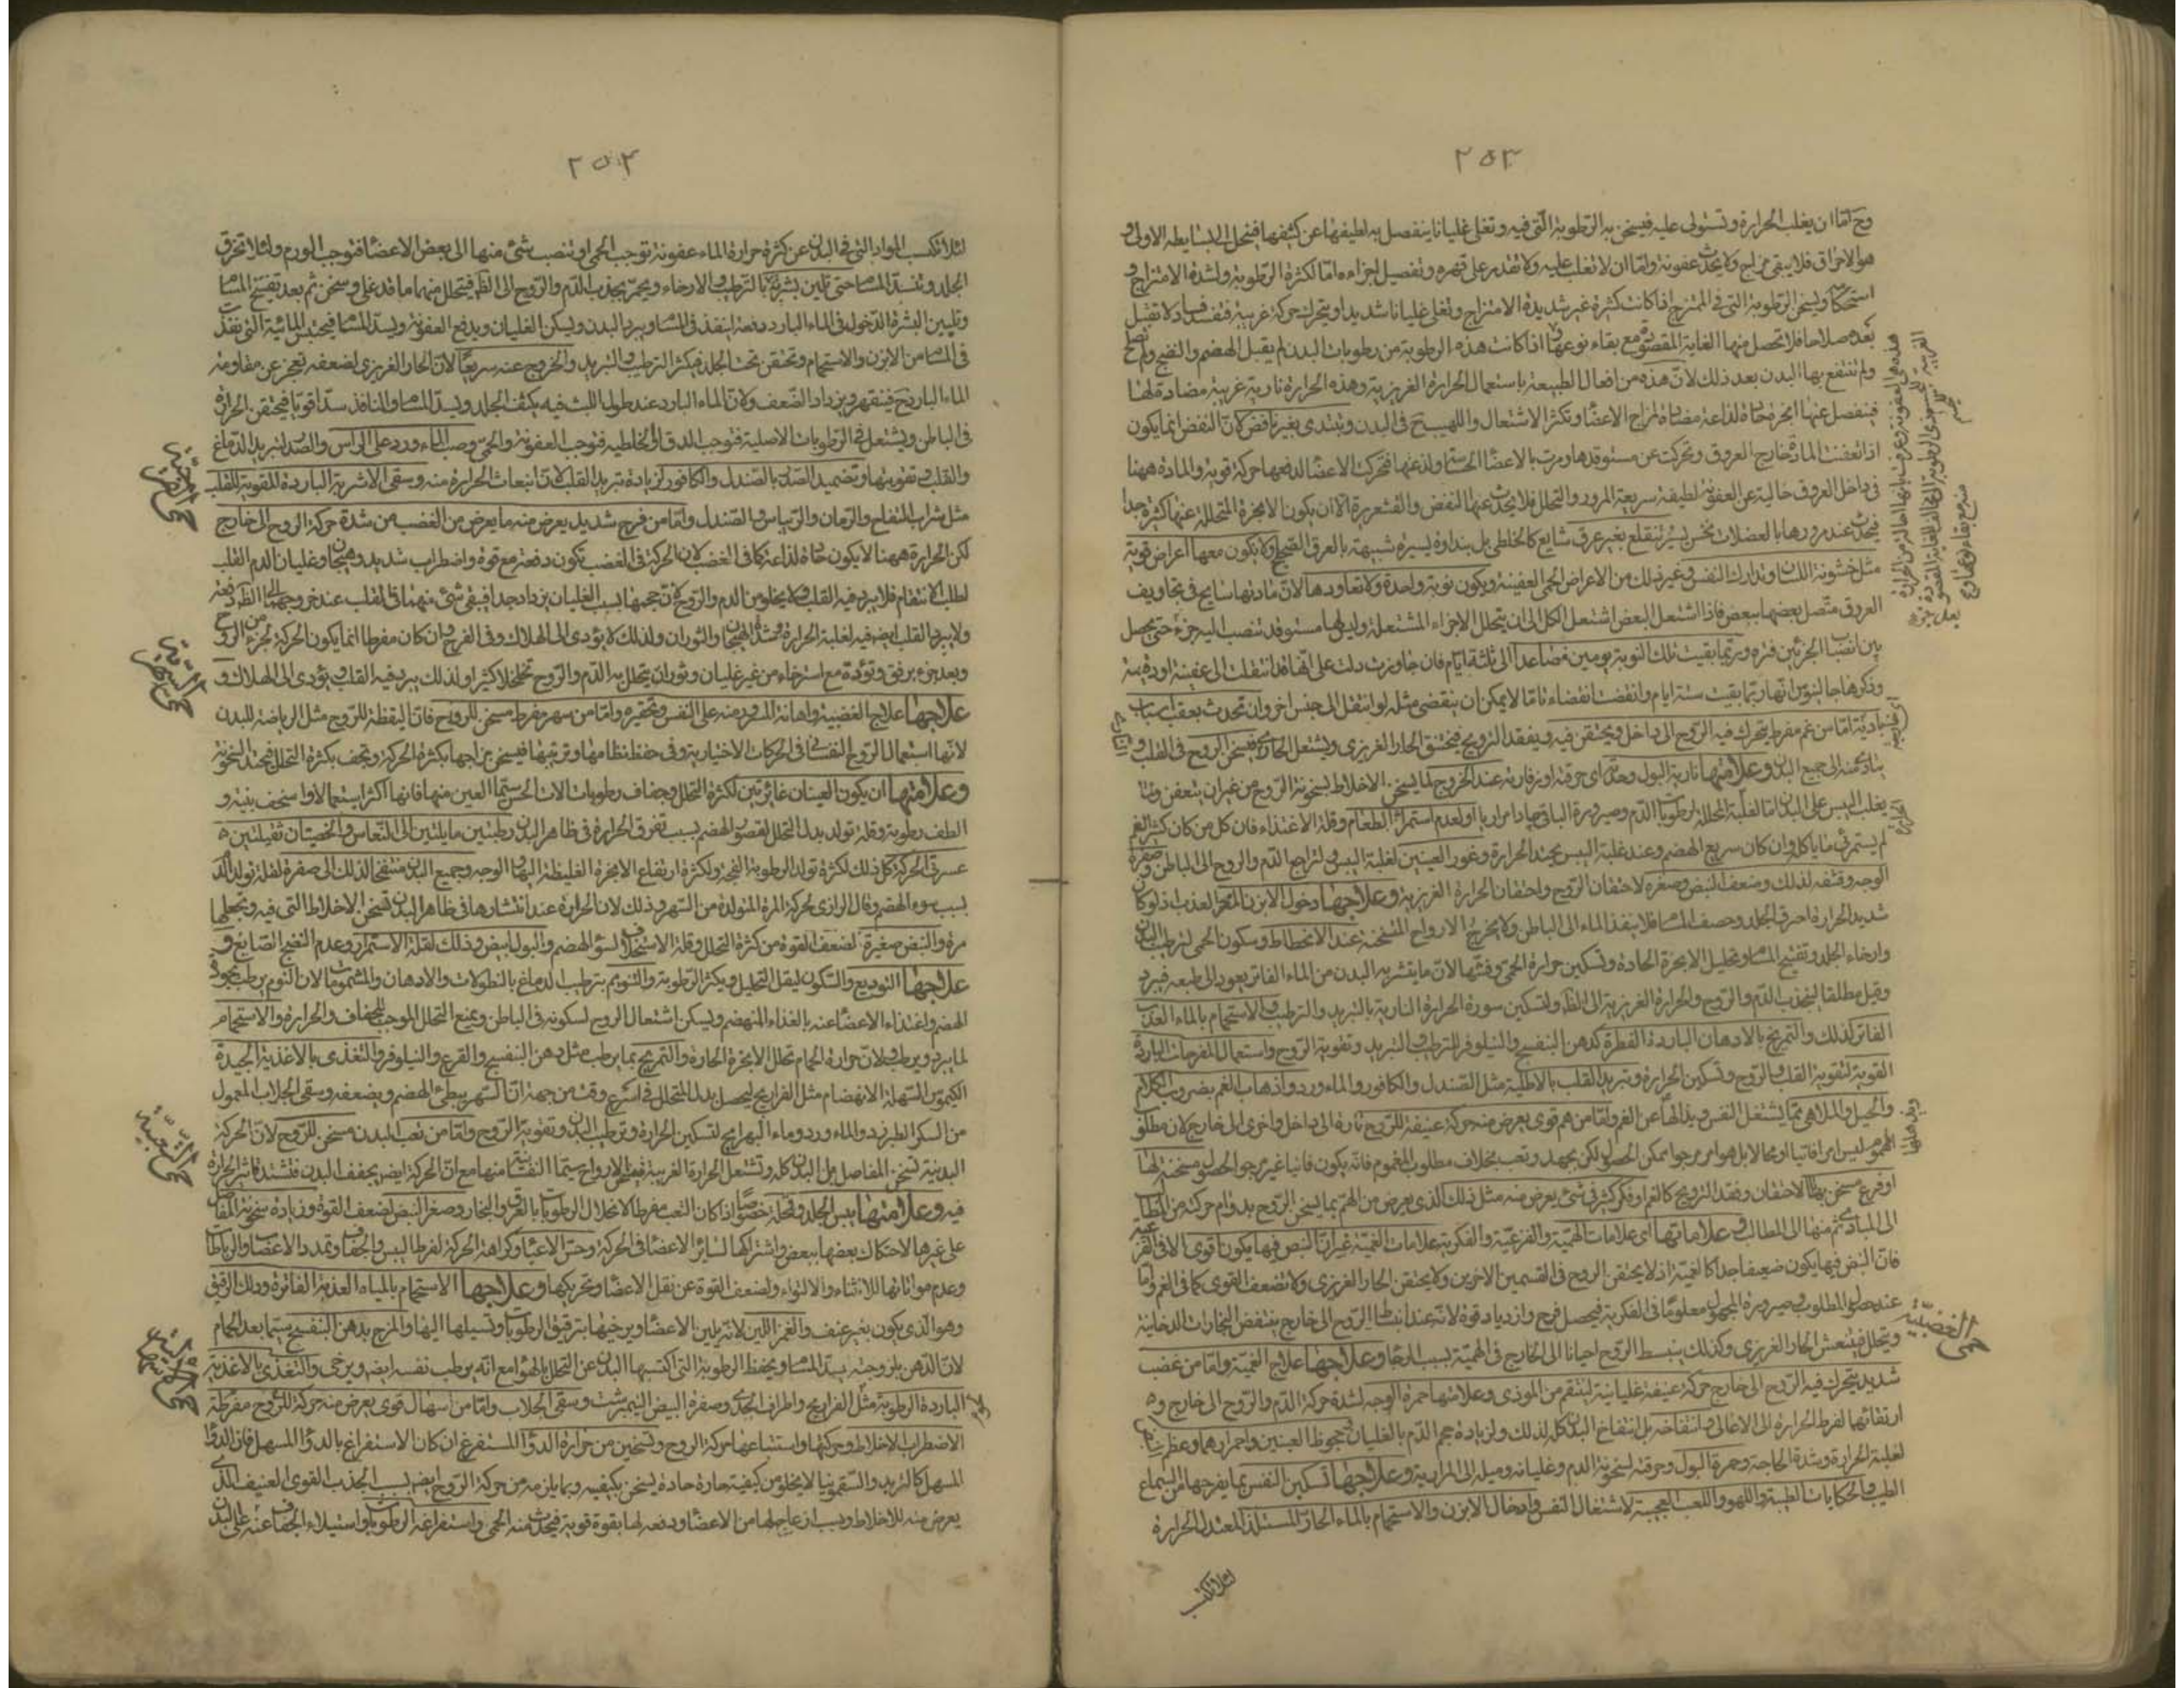 ٢٥٣
وح اما ان يغلب الحرارة وتستولى عليه فيسخن به الرطوبة التى فيه وتغلى غليانا ينفصل به لطيفها عن كثيفها فينحل الى بسايطه الاولى و
هو الاحتراق فلا يبقى مزاج ولا يحدث عفونة واما ان لا تغلب عليه ولا تقدر على قهره وتفصيل اجزاءه اما لكثرة الرطوبة ولشدة الامتزاج و
استحكامه ويسخن الرطوبة التى فى الممتزج اذا كانت كثيرة غير شديدة الامتزاج وتغلى غليانا شديدا ويتحرك حركة غريبة فتفسد فسادا لا تقبل
بعده صلاحا فلا تحصل منها الغاية المقصودة مع بقاء نوعها اذا كانت هذه الرطوبة من رطوبات البدن لم يقبل الهضم والنضج ولم تصلح
ولم تنتفع بها البدن بعد ذلك لان هذه من افعال الطبيعة باستعمال الحرارة الغريزية وهذه الحرارة نارية غريبة مضادة لها
فينفصل عنها ابخرة حادة لذاعة مضادة لمزاج الاعضاء ويكثر الاشتعال واللهيب ح فى البدن ويبتدى بغير نافض لان النفض انما يكون
اذا تعفنت المادة خارج العروق وتحركت عن مستوقدها ومرت بالاعضا الحساسة ولذعتها فتحركت الاعضا لدفعها حركة قوية والمادة ههنا
فى داخل العروق خالية عن العفونة لطيفة سريعة المرور والتحلل فلا يحدث عنها النفض والقشعريرة الا ان يكون الابخرة المتحللة عنها كثيرة جدا
فيحدث عند مرورها بالعضلات نخس يسير تنقلع بغير عرق شايع كالخلطى بل بنداوة يسيرة شبيهة بالعرق الصحيح ولا يكون معها اعراض قوية
مثل خشونة اللسان وتدارك النفس وغير ذلك من الاعراض الحمى العفنية ويكون نوبة واحدة ولا تعاودها لان مادتها سايح فى تجاويف
العروق متصل بعضها ببعض فاذا اشتعل البعض اشتعل الكل الى ان يتحلل الاجزاء المشتعلة وليس لها مستوقد تنصب اليه جزء حتى يحصل
بين انصباب الجزئين فترة وربما بقيت تلك النوبة يومين فصاعدا الى ثلثة ايام فان جاوزت دلت على انها قد انتقلت الى عفنية او دقية
وذكر جالينوس انها ربما بقيت ستة ايام وانقضت انقضاء تاما لا يمكن ان ينقضى مثله لو انتقل الى جنس اخر وان تحدث بعقب اسباب
بادية اما من غم مفرط يتحرك فيه الروح الى داخل ويحتقن فيه ويفقد الترويح فيختنق الحار الغريزى ويشتعل الحار فيسخن الروح فى القلب و
يتادى منه الى جميع البدن وعلامتها نارية البول وحدته اى حرقته او نفارته عند الخروج لما يسخن الاخلاط بسخونة الروح من غير ان يتعفن ولما
يغلب اليبس على البدن اما لغلبة المحللة لرطوبات الدم وصيرورة الباقى حادا مراريا او لعدم استمراء الطعام وقلة الاغتذاء فان كل من كان كثير الغم
لم يستمرئ ما ياكل وان كان سريع الهضم وعند غلبة اليبس يحتد الحرارة وغور العينين لغلبة اليبس ولتراجع الدم والروح الى الباطن وصفرة
الوجه وقشفه لذلك وضعف النبض وصغره لاحتقان الروح واحتقان الحرارة الغريزية وعلاجها دخول الابزن الفاتر العذب اذ لو كان
شديد الحرارة احرق الجلد وخصف المسام فلا ينفذ الماء الى الباطن ولا يخرج الارواح المتسخنة عند الانحطاط وسكون الحمى لترطيب البدن
وارخاء الجلد وتفتيح المسام وتحليل الابخرة الحادة وتسكين حرارة الحمى وفشها لان ما يتشربه البدن من الماء الفاتر يعود الى طبعه فيبرد
وقيل مطلقا لينجذب الدم والروح والحرارة الغريزية الى الظاهر ولتسكين سورة الحرارة النارية بالتبريد والترطيب والاستحمام بالماء العذب
الفاتر لذلك والتمريخ بالادهان الباردة العطرة كدهن البنفسج والنيلوفر للترطيب والتبريد وتقوية الروح واستعمال المفرحات الباردة
القوية لتقوية القلب والروح وتسكين الحرارة وتبريد القلب بالاطلية مثل الصندل والكافور والماء ورد واذهاب الغم بضروب الكلام
والحيل والملاهى مما يشغل النفس ويذهلها عن الغم واما من هم قوى يعرض منه حركة عنيفة للروح تارة الى داخل واخرى الى خارج لان مطلوب
المهموم ليس امرا فاتيا او محالا بل هو امر مرجو ممكن الحصول لكن بجهد وتعب بخلاف مطلوب المغموم فانه يكون فانيا غير مرجو الحصول مسخنة لها
او فزع مسخن بهذا الاحتقان وفقد الترويح كالغم او فكر كثير فى شئ يعرض منه مثل ذلك الذى يعرض من الهم بما يسخن الروح بدوام حركة من المطالب
الى المبادى ثم منها الى المطالب وعلاماتها اى علامات الهمية والفزعية والفكرية علامات الغمية غير ان النبض فيها يكون اقوى الا فى الفزعية
فان النبض فيها يكون ضعيفا جدا كالغمية اذ لا يحتقن الروح فى القسمين الاخرين ولا يختنق الحار الغريزى ولا تضعف القوى كما فى الغم واما
عند حصول المطلوب وصيرورة المجهول معلوما فى الفكرية فيحصل فرح وازدياد قوة لانه عند انبساط الروح الى خارج ينتفض البخارات الدخانية
وتتحلل فينتعش الحار الغريزى وكذلك ينبسط الروح احيانا الى الخارج فى الهمية بسبب الرجا وعلاجها علاج الغمية واما من غضب
شديد يتحرك فيه الروح الى خارج حركة عنيفة غليانية لينتقم من الموذى وعلامتها حمرة الوجه لشدة حركة الدم والروح الى خارج و
ارتقائها لفرط الحرارة الى الاعالى وانتفاخه بل انتفاخ البدن كله لذلك ولزيادة حجم الدم بالغليان وجحوظ العينين واحمرارهما وعظم النبض
لغلبة الحرارة وشدة الحاجة وحمرة البول وحرقته لسخونة الدم وغليانه وميله الى المرارية وعلاجها تسكين النفس بما يفرحها من السماع
الطيب والحكايات الطيبة واللهو واللعب العجيبة لاشتغال النفس وادخال الابزن والاستحمام بالماء الحار المستلذ المعتدل الحرارة
لئلا تكتسب
حمى الغضبية
٢٥٤
لئلا تكتسب المواد التى فى البدن عن كثرة حرارة الماء عفونة توجب الحمى او تنصب شئ منها الى بعض الاعضا فتوجب الورم ولئلا تحرق
الجلد وتنسد المسام حتى تلين بشرته بالترطيب والارخاء ويحمر بجذب الدم والروح الى الظاهر فيتحلل منهما ما قد غلى وسخن ثم بعد تفتيح المسام
وتليين البشرة الدخول فى الماء البارد دفعة لينفذ فى المسام ويبرد البدن ويسكن الغليان ويدفع العفونة ويسد المسام فيحتبس المائية التى تنفذ
فى المسام من الابزن والاستحمام وتحتقن تحت الجلد فيكثر الترطيب والتبريد والخروج عنه سريعا لان الحار الغريزى لضعفه تعجز عن مقاومة
الماء البارد ح فينقهر ويزداد الضعف ولان الماء البارد عند طول اللبث فيه يكثف الجلد ويسد المسام والمنافذ سدا قويا فيحتقن الحرارة
فى الباطن ويشتعل فى الرطوبات الاصلية فتوجب الدق او الخلطية فتوجب العفونة والحمى وصب الماء ورد على الراس والصدر لتبريد الدماغ
والقلب وتقويتها وتضميد الصدر بالصندل والكافور لزيادة تبريد القلب لان انبعاث الحرارة منه وسقى الاشربة الباردة المقوية للقلب
مثل شراب التفاح والرمان والريباس والصندل واما من فرح شديد يعرض منه ما يعرض من الغضب من شدة حركة الروح الى خارج
لكن الحرارة ههنا لا يكون حادة لذاعة كما فى الغضب لان الحركة فى الغضب تكون دفعة مع قوة واضطراب شديد وهيجان وغليان الدم القلب
لطلب الانتقام فلا يبرد فيه القلب ولا يخلو من الدم والروح لان حجمها بسبب الغليان يزداد جدا فيبقى شئ منهما فى القلب عند خروجهما الى الظاهر دفعة
ولا يبرد القلب ايضا فيه لغلبة الحرارة وشدة الهيجان والثوران ولذلك لا يؤدى الى الهلاك وفى الفرح وان كان مفرطا انما يكون الحركة لجزء من الروح
وبعد جزء برفق وتؤدة مع استرخاء من غير غليان وثوران يتحلل به الدم والروح تحللا كثيرا ولذلك يبرد فيه القلب ويؤدى الى الهلاك و
علاجها علاج الغضبية واهانة المسرور منه على النفس وتحقيره واما من سهر مفرط مسخن للروح فان اليقظة للروح مثل الرياضة للبدن
لانها استعمال الروح النفسانى فى الحركات الاختيارية وفى حفظ نظامها وترتيبها فيسخن مزاجها بكثرة الحركة ويجف بكثرة التحلل فيحتد السخونة
وعلامتها ان يكون العينان غائرتين لكثرة التحلل وجفاف رطوبات الات الحس سيما العين منها فانها اكثر استعمالا واسخف بنية و
الطف رطوبة وقلة تولد بدل التحلل لقصور الهضم بسبب تفرق الحرارة فى ظاهر البدن رطبتين مايلتين الى النعاس والخصيتان ثقيلتين
عسرتى الحركة كل ذلك لكثرة تولد الرطوبة الفجة ولكثرة ارتفاع الابخرة الغليظة اليها والوجه وجميع البدن منتفخا لذلك الى صفرة لقلة تولد الدم
بسبب سوء الهضم وقال الرازى لحركة المرة المتولدة من السهر وذلك لان الحرارة عند انتشارها فى ظاهر البدن تسخن الاخلاط التى فيه وتجعلها
مرة والنبض صغيرة لضعف القوة من كثرة التحلل وقلة الاستخلاف لسؤ الهضم والبول ابيض وذلك لقلة الاستمراء وعدم النضج الصابغ و
علاجها التوديع والسكون ليقل التحليل ويكثر الرطوبة والتنويم بترطيب الدماغ بالنطولات والادهان والمشمومات لان النوم يرطب بجودة
الهضم واغتذاء الاعضا عنه بالغذاء المنهضم ويسكن اشتعال الروح لسكونه فى الباطن ويمنع التحلل الموجب للجفاف والحرارة والاستحمام
لما يبرد ويرطب ولان حرارة الحمام تحلل الابخرة الحارة والتمريخ بما يرطب مثل دهن البنفسج والقرع والنيلوفر والتغذى بالاغذية الجيدة
الكيموس السهلة الانهضام مثل الفراريج ليحصل بدل المتحلل فى اسرع وقت من جهة ان السهر يبطئ الهضم ويضعفه وسقى الجلاب المعمول
من السكر الطبرزد والماء ورد وماء البهرامج لتسكين الحرارة وترطيب البدن وتقوية الروح واما من تعب البدن مسخن للروح لان الحركة
البدنية تسخن المفاصل بل البدن كله وتشتعل الحرارة الغريبة فيسخن الارواح سيما النفسانية منها مع ان الحركة ايضا يجفف البدن فتشتد تاثير الحرارة
فيه وعلامتها يبس الجلد وقحله خصوصا اذا كان التعب مفرطا لانحلال الرطوبات بالعرق والبخار وصغر النبض لضعف القوة وزيادة سخونة المفاصل
على غيرها لاحتكاك بعضها ببعض واشتراكها لسائر الاعضا فى الحركة وحس الاعياء وكراهة الحركة لفرط اليبس والجفاف وتمدد الاعصاب والرباطات
وعدم مواتاتها للانثناء والالتواء ولضعف القوة عن نقل الاعضا وتحريكها وعلاجها الاستحمام بالمياه العذبة الفاترة ودلك الرقيق
وهو الذى يكون بغير عنف والغمز اللين لانه يلين الاعضا ويرخيها بترقيق الرطوبات وتسييلها اليها والمرخ بدهن البنفسج سيما بعد الحمام
لان الدهن بلزوجته يسد المسام ويحفظ الرطوبة التى اكتسبها البدن عن التحلل بالهواء مع انه يرطب نفسه ايضا ويرخى والتغذى بالاغذية
الباردة الرطوبة مثل الفراريج واطراف الجدى وصفرة البيض النيمبرشت وسقى الجلاب واما من اسهال قوى يعرض منه حركة للروح مفرطة
لاضطراب الاخلاط وحركتها واستتباعها حركة الروح وتسخين من حرارة الدوا المستفرغ ان كان الاستفراغ بالدوا المسهل فان الدوا
المسهل كالتربد والسقمونيا لا يخلو من كيفية حارة حادة يسخن بكيفيته وبما يلزمه من حركة الروح ايضا بسبب الجذب القوى العنيف الذى
يعرض منه للاخلاط وبسبب ازعاجها من الاعضا ودفعه لها بقوة قوية فيحدث منه الحمى واستفراغه الرطوبات واستيلاء الجفاف عنه على البدن
حمى الفرحية
حمى السهرية
حمى التعبية